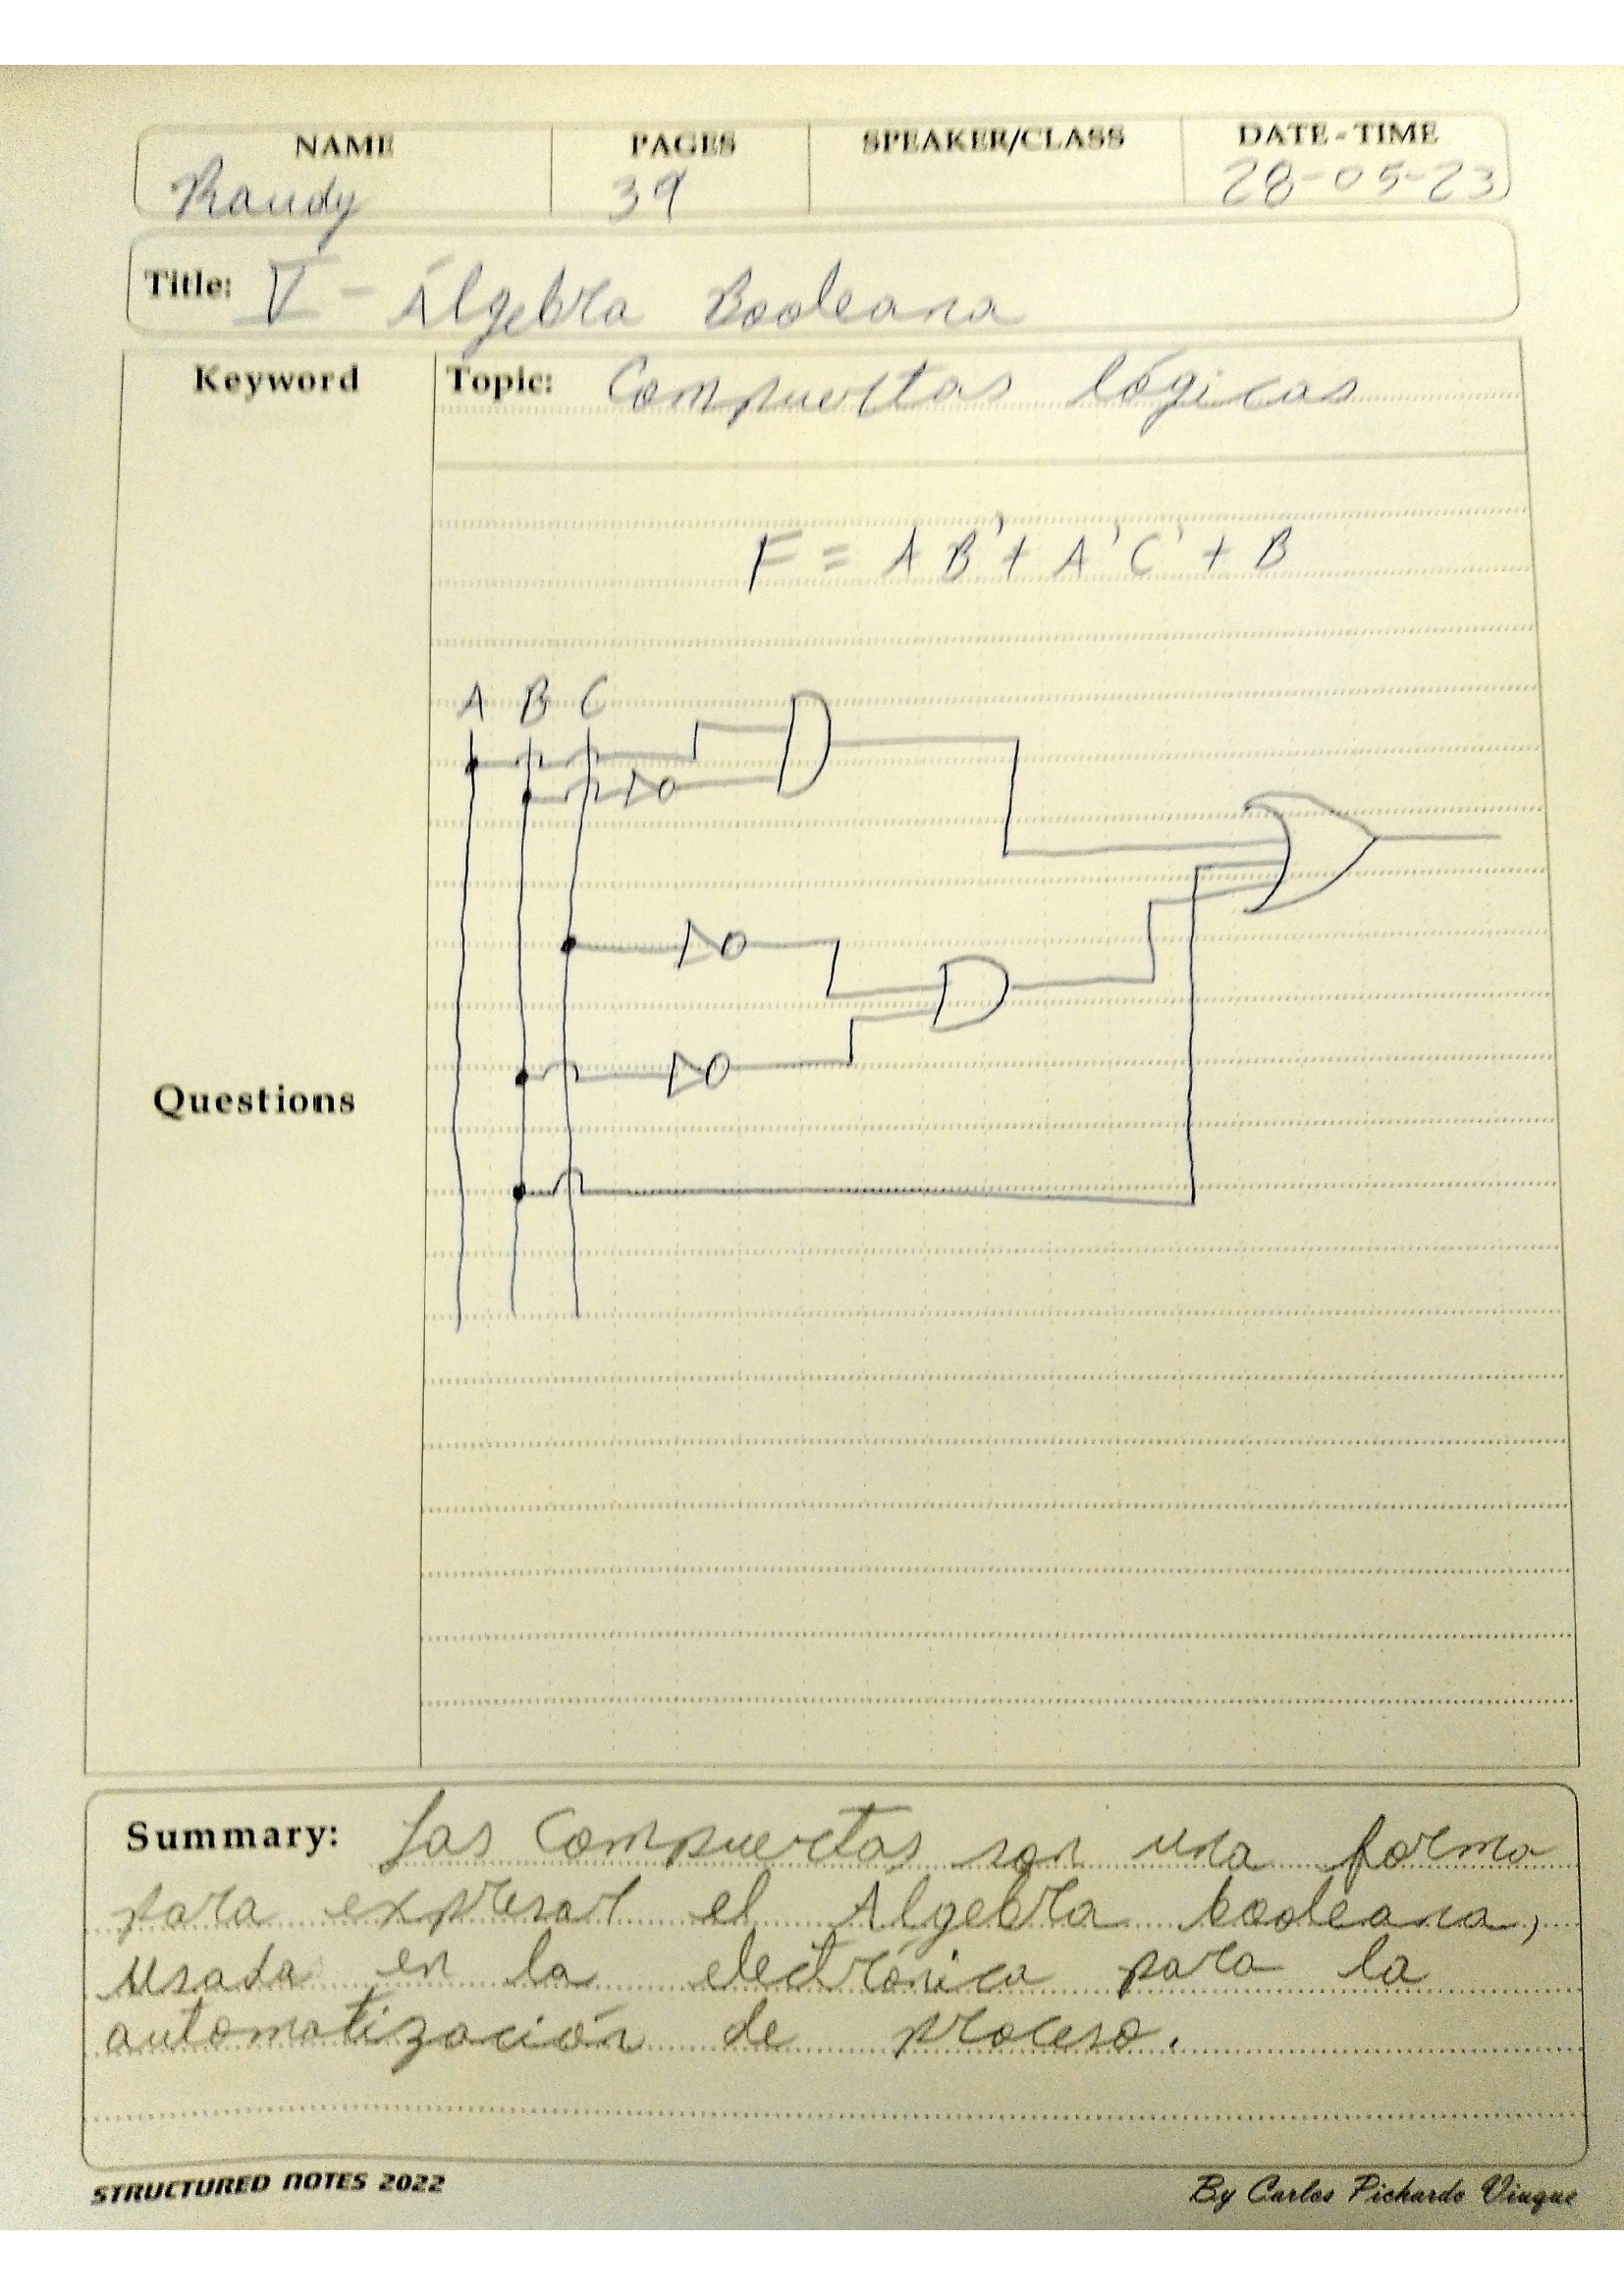 NAME PAGES SPEAKER/CLASS DATE-TIME
Randy 39 28-05-23
Title: V - Álgebra Booleana
Keyword Topic: Compuertas lógicas
F = A B' + A' C' + B
A B C
Questions
Summary: Las Compuertas son una forma
para expresar el Álgebra booleana,
usada en la electrónica para la
automatización de proceso.
STRUCTURED NOTES 2022 By Carlos Pichardo Viuque